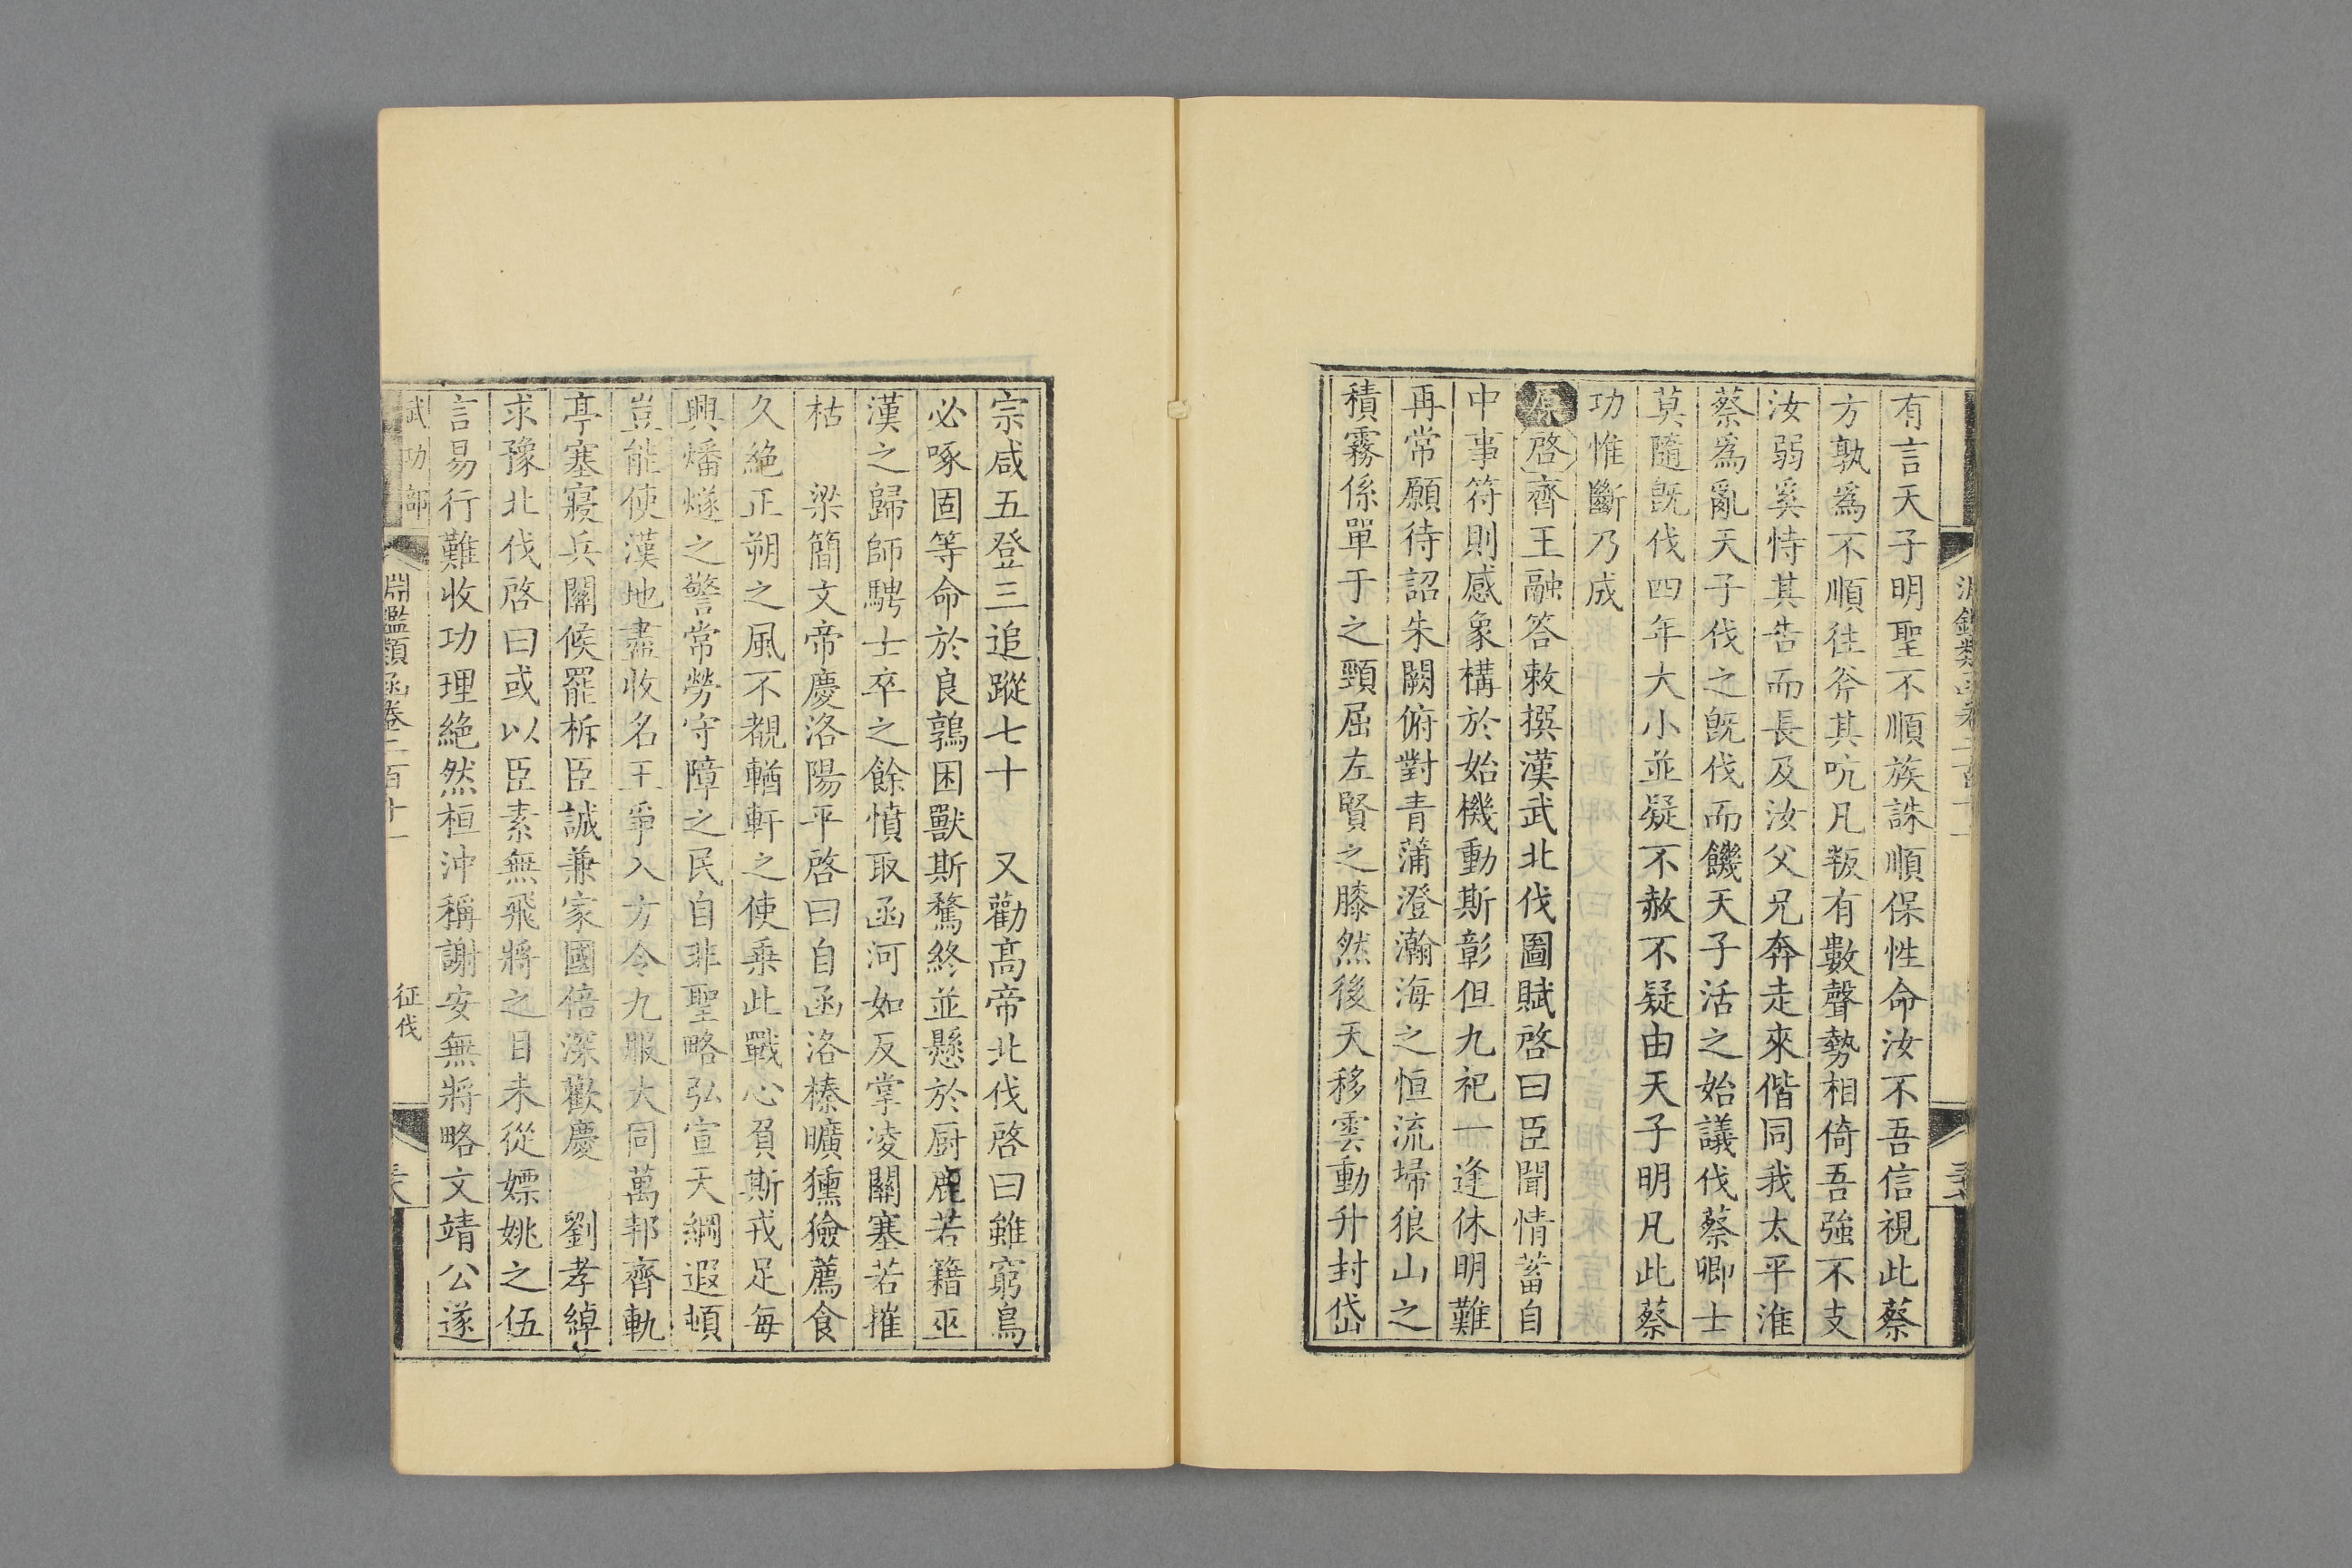 有言天子明聖不順族誅順保性命汝不吾信視此蔡
方孰爲不順徃斧其吭凡叛有數聲勢相倚吾強不支
汝弱奚恃其告而長及汝父兄奔走來偕同我太平淮
蔡爲亂天子伐之旣伐而饑天子活之始議伐蔡卿士
莫隨旣伐四年大小並疑不赦不疑由天子明凡此蔡
功惟斷乃成
原啓齊王融答敕撰漢武北伐圖賦啓曰臣聞情蓄自
中事符則感象構於始機動斯彰但九祀一逢休明難
再常願待詔朱闕俯對青蒲澄瀚海之恒流埽狼山之
積霧係單于之頸屈左賢之膝然後天移雲動升封岱
宗咸五登三追蹤七十　又勸高帝北伐啓曰雖窮鳥
必啄固等命於良鶉困獸斯騖終並懸於厨鹿若籍巫
漢之歸師騁士卒之餘憤取函河如反掌凌關塞若摧
枯　梁簡文帝慶洛陽平啓曰自函洛榛曠獯獫薦食
久絶正朔之風不覩輶軒之使乗此戰心負斯戎足每
興燔燧之警常勞守障之民自非聖略弘宣天綱遐頓
豈能使漢地盡收名王爭入方今九服大同萬邦齊軌
亭塞寢兵關候罷柝臣誠兼家國倍深歡慶　劉孝綽
求豫北伐啓曰或以臣素無飛將之目未從嫖姚之伍
言易行難收功理絶然桓沖稱謝安無將略文靖公遂
武功部
淵鑑類函卷二百十一
征伐